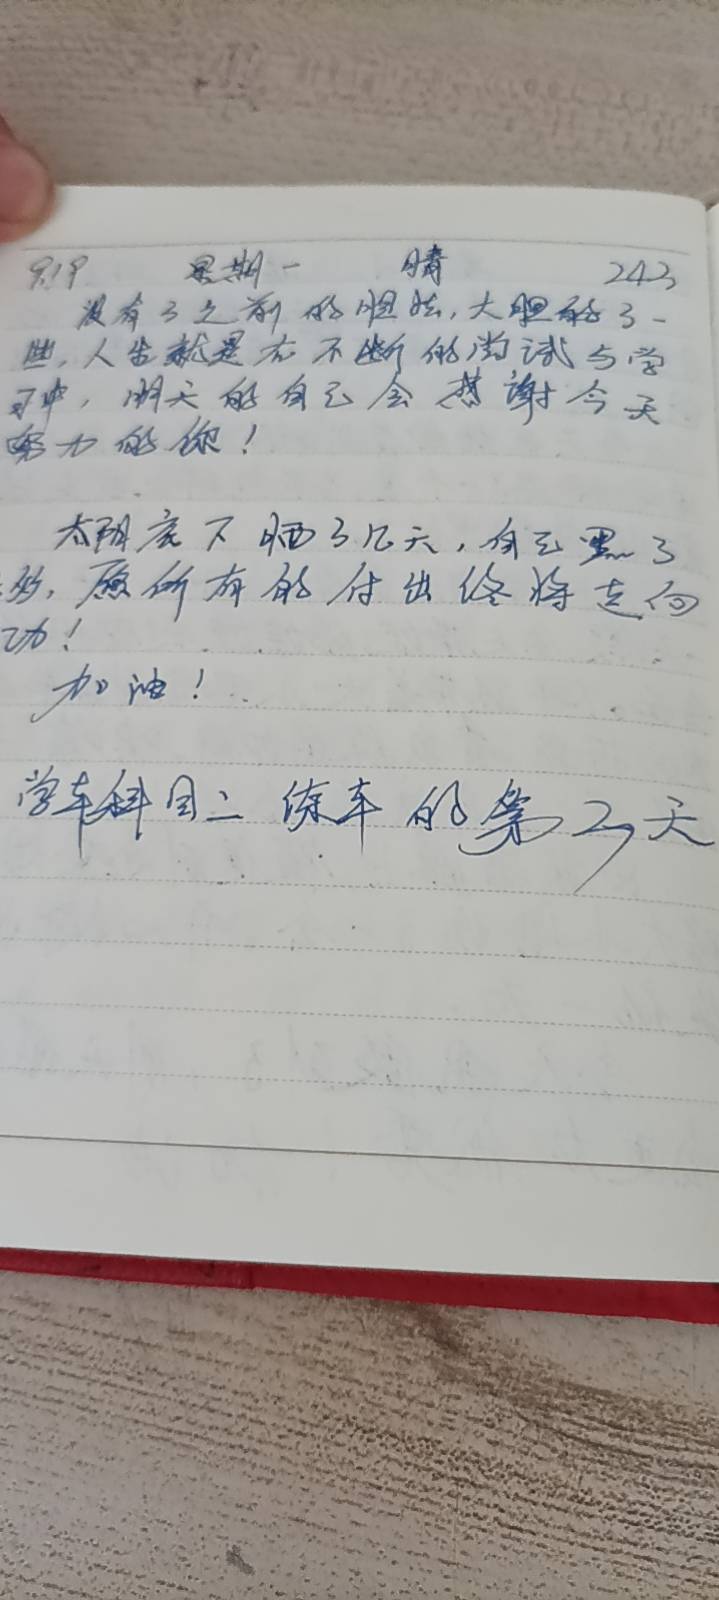 9.19 星期一 晴 243
没有了之前的胆怯，大胆的了一
些，人生就是在不断的尝试与学
习中，明天的自己会感谢今天
努力的你！
太阳底下晒了几天，自己黑了
，愿所有的付出终将走向
功！
加油！
学车科目二练车的第3天